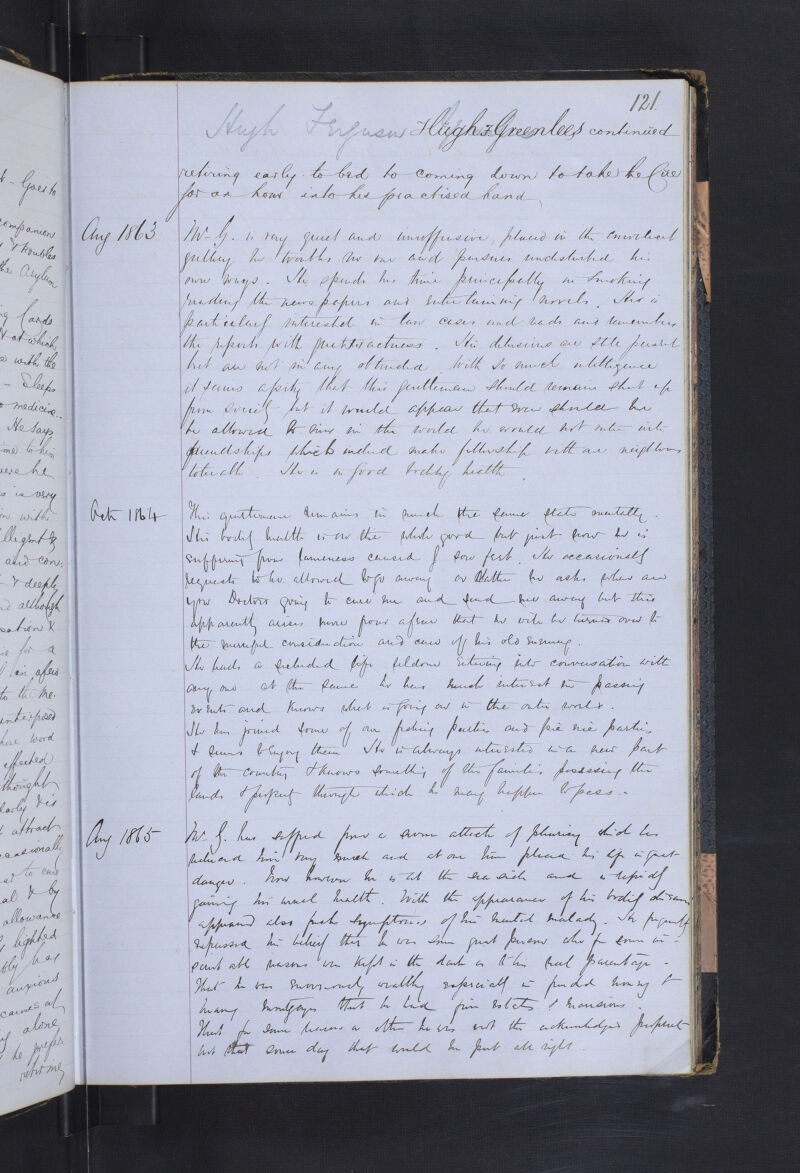 t - Goes to
companion
& troubles
the Asylum
ng Cards
& at which
with the
- Sleeps
medicine -
He says
time to him
were he
is very
with
lligent &
and con-
& deeply
and although
sation &
for a
in after
to the me-
interposed
whose word
effected
thought
early & is
attract
occasionally
to care
al & by
allowance
lighted
bly has
anxious
cames at
by alone
he prefers
retiring
121
Hugh Ferguson Hugh F Greenlees continued
retiring early to bed to coming down to take the Cue
for an hour into his practised hand
Aug 1863
Mr G. is very quiet and inoffensive, placed in the convalescent
gallery he troubles no one and pursues undisturbed his
own ways. He spends his time principally in smoking
reading the newspapers and entertaining novels. He is
particularly interested in law cases and reads and remembers
the reports with great exactness. His delusions are still present
but are not in any way obtruded. With so much intelligence
it seems a pity that this gentleman should remain shut up
from society but it would appear that even should he
be allowed to live in the world he would not enter into
friendships which indeed make fellowship with our neighbours
He is in good bodily health
Oct 1864
This gentleman remains in much the same state mentally.
His bodily health is on the whole good but just now he is
suffering from lameness caused by sore feet. He occasionally
requests to be allowed to go away or rather he asks when are
you Doctors going to cure me and send me away but this
apparently arises more from a fear that he will be turned over to
the merciful consideration and care of his old enemy.
He leads a secluded life seldom entering into conversation with
any one at the same he has much interest in passing
events and knows what is going on in the outer world.
He has joined some of our fishing parties and pic nic parties
& seems to enjoy them. He is always interested in a new part
of the country & knows something of the families possessing the
lands & property through which he may happen to pass -
Aug 1865
Mr G. has suffered from a severe attack of pleurisy which has
reduced him very much and at one time placed his life in great
danger. Now however he is at the sea side and is rapidly
gaining his usual health. With the appearance of his bodily disease
appeared also fresh symptoms of his mental malady. He frequently
expressed his belief that he was some great person who for some in-
scrutable reasons was kept in the dark as to his real parentage -
That he was enormously wealthy especially in funded money &
heavy mortgages that he had given estates & mansions -
That for some reason or other he was not the acknowledged proprietor
but that some day that would be put all right.